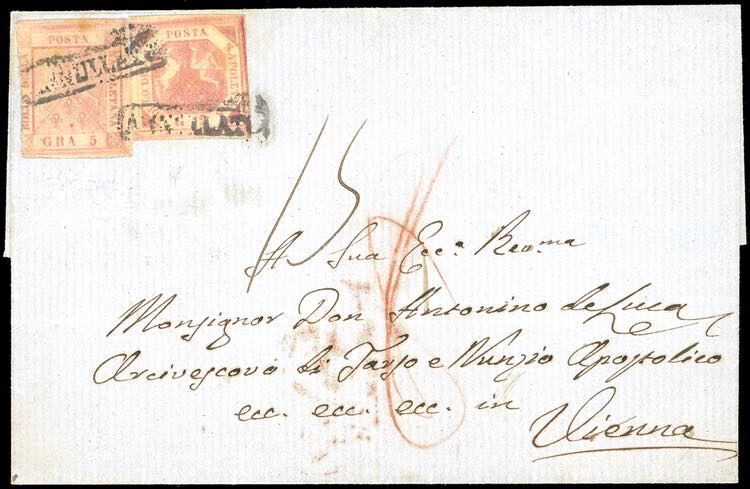 POSTA
BOLLO DELLA
GRA 5
POSTA
NAPOLETA
ANNULLATO
ANNULLATO
15
A Sua Ecc.a Rev.ma
Monsignor Don Antonino de Luca
Arcivescovo di Tarso e Nunzio Apostolico
ecc. ecc. ecc. in
Vienna